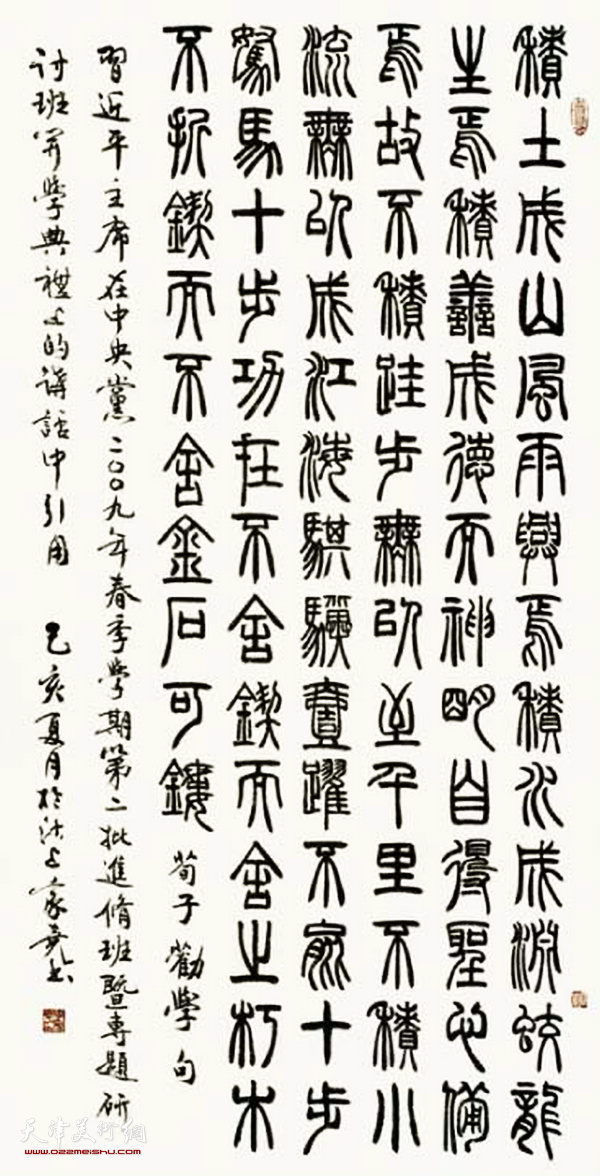 積土成山風雨興焉積水成淵蛟龍
生焉積善成德而神明自得聖心備
焉故不積跬步無以至千里不積小
流無以成江海騏驥壹躍不能十步
駑馬十步功在不舍鍥而舍之朽木
不折鍥而不舍金石可鏤 荀子勸學句
習近平主席在中央黨二〇〇九年春季學期第二批進脩班暨專題研
討班開學典禮上的講話中引用 己亥夏月於沽上家堯書
天津美術網
www.022meishu.com